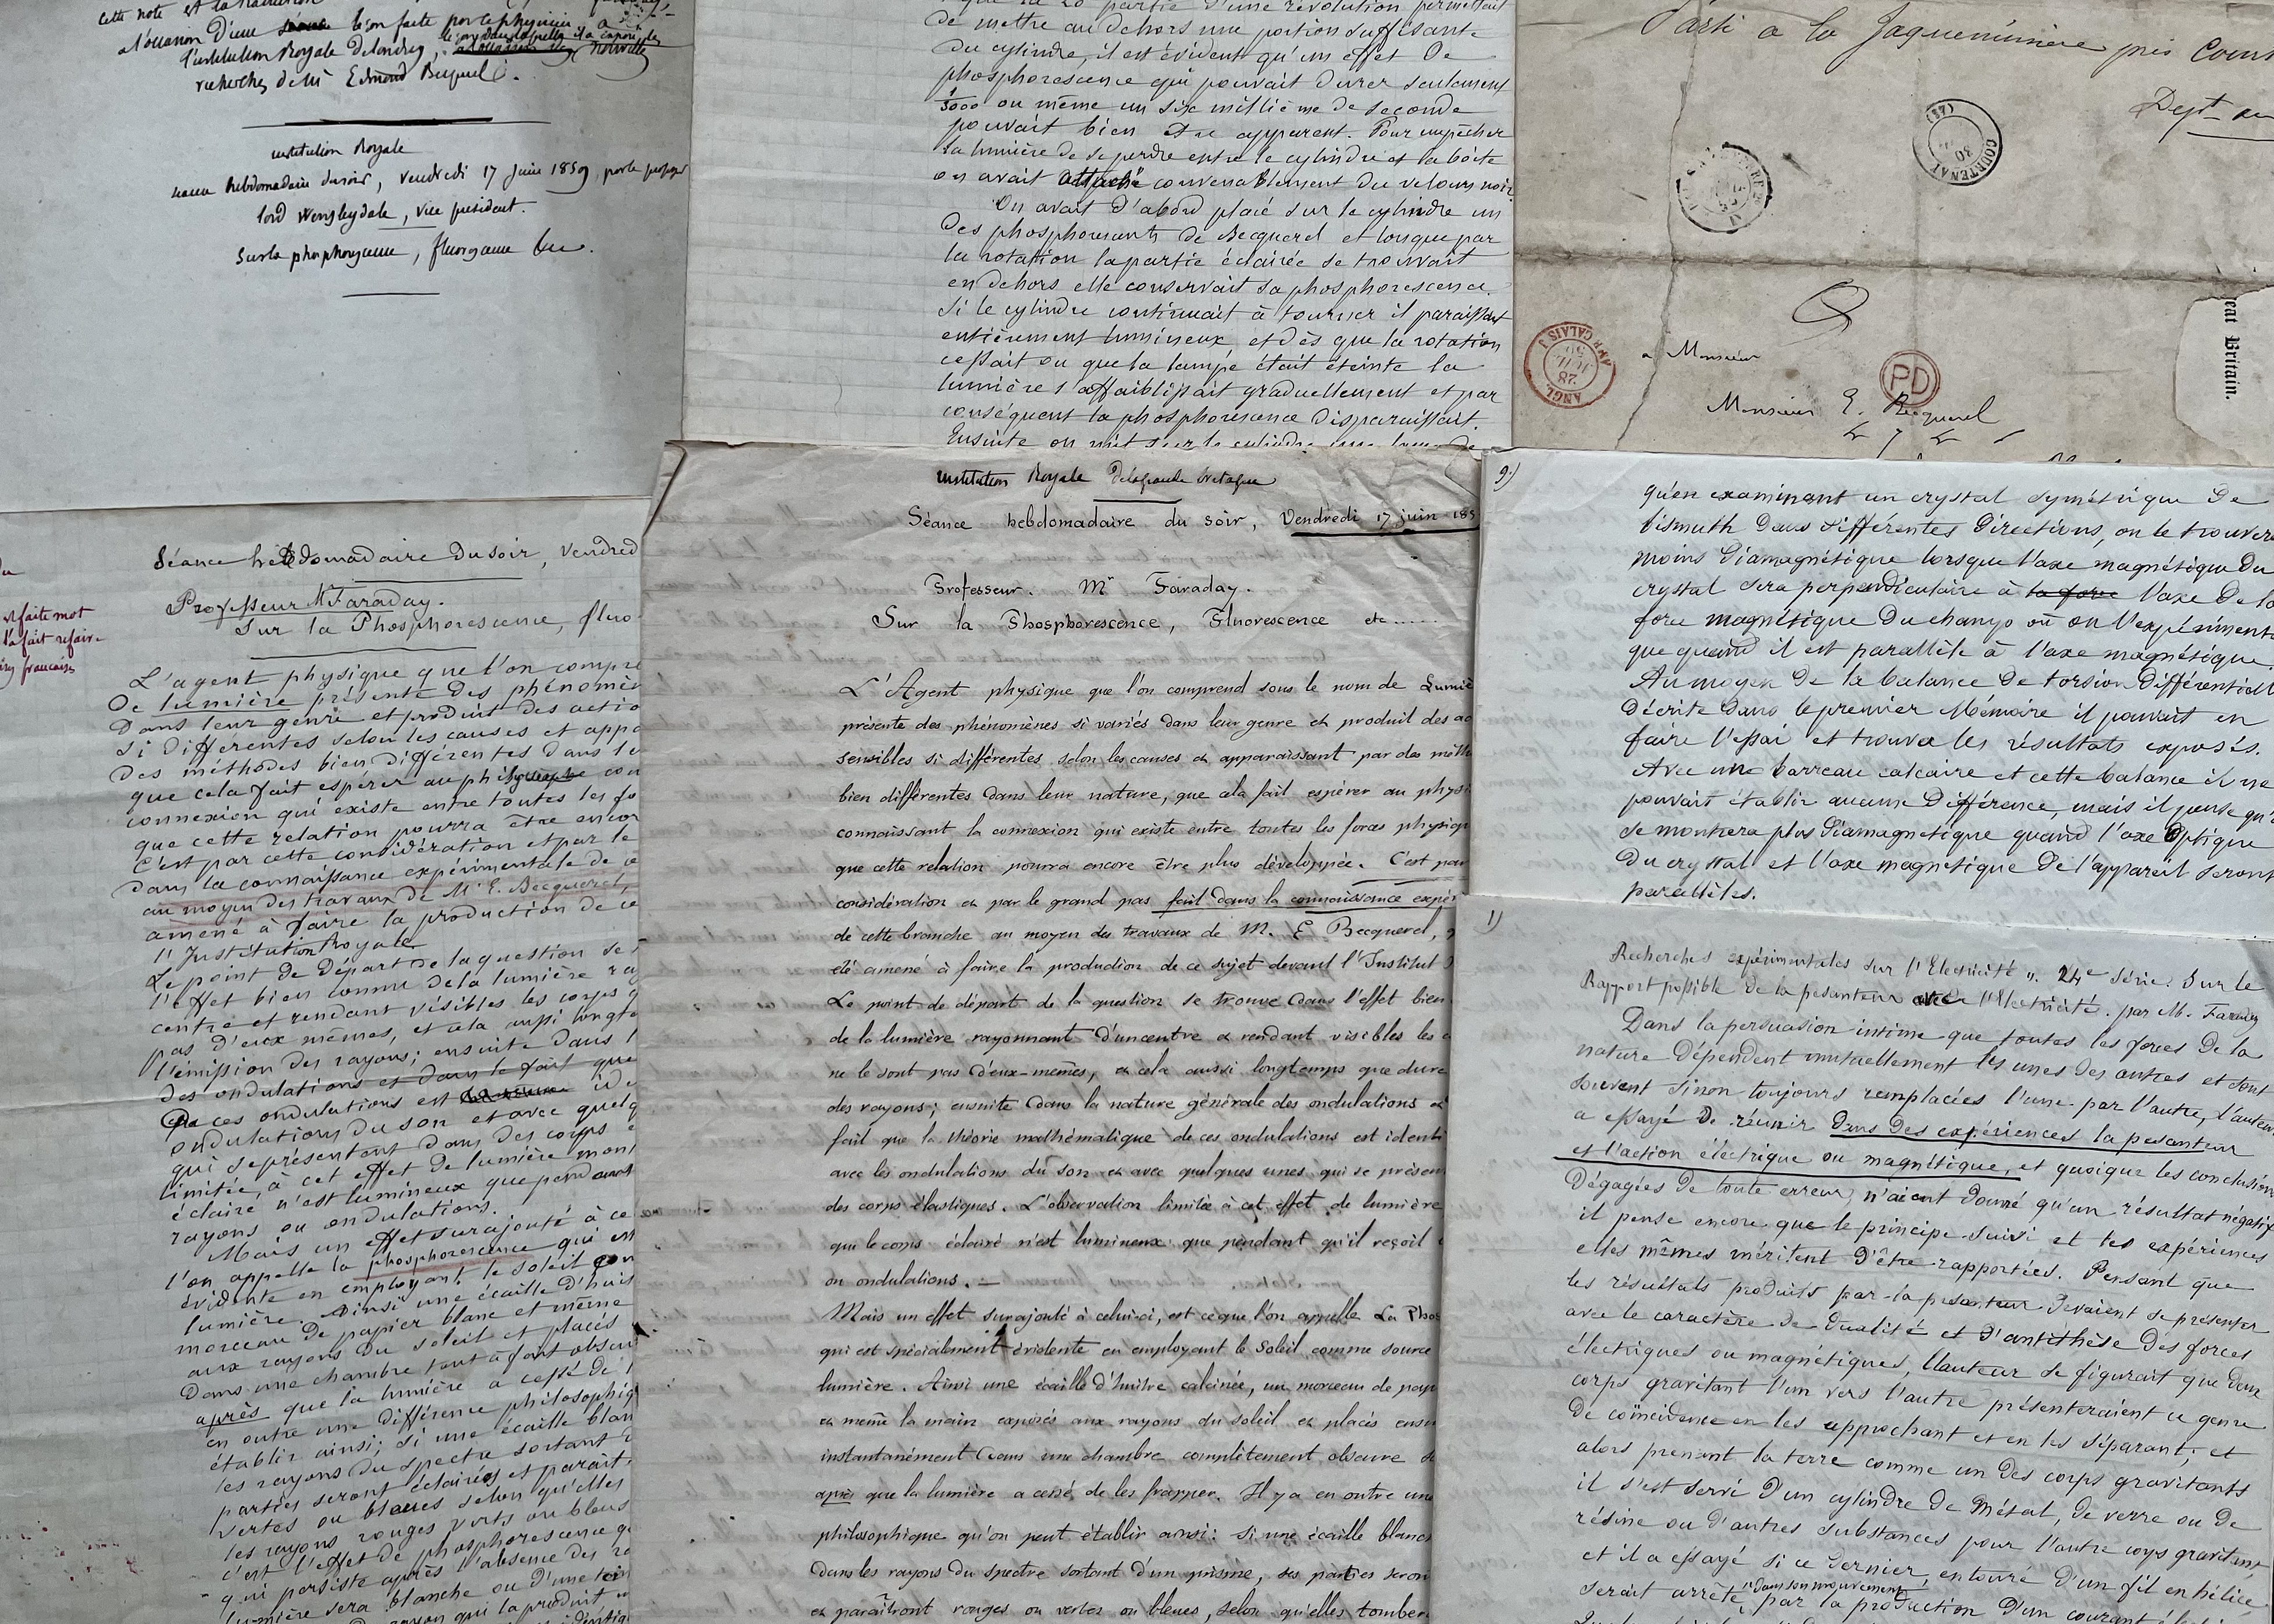 cette note est la traduction
à l'occasion d'une leçon faite par ce physicien, à
l'institution Royale de Londres,
recherches de Mr Edmond Becquerel.
institution Royale
séance hebdomadaire du soir, vendredi 17 juin 1859
lord Wensleydale, vice président.
sur la phosphorescence, fluorescence &c.
de mettre au dehors une portion suffisante
du cylindre, il est évident qu'un effet de
phosphorescence qui pouvait durer seulement
1/3000 ou même un six millième de seconde
pouvait bien être apparent. Pour empêcher
la lumière de se perdre entre le cylindre et la boîte
on avait attaché convenablement du velours noir.
On avait d'abord placé sur le cylindre un
des phosphorescents de Becquerel et lorsque par
la rotation la partie éclairée se trouvait
en dehors elle conservait sa phosphorescence.
Si le cylindre continuait à tourner il paraissait
entièrement lumineux et dès que la rotation
cessait ou que la lampe était éteinte la
lumière s'affaiblissait graduellement et par
conséquent la phosphorescence disparaissait.
Ensuite on mit sur le cylindre
Parti a la Jaqueminiere près Court
Dept
COURTENAY
30
(87)
ANGL. AMB. CALAIS
28
PD
a Monsieur
Monsieur E. Becquerel
eat Britain.
refaite mot
l'a fait refaire
français
Séance hebdomadaire du soir, Vendred
Professeur Mr Faraday.
Sur la Phosphorescence, fluo
L'agent physique que l'on compre
de lumière présente des phénomèn
dans leur genre et produit des actio
si différentes selon les causes et appa
des méthodes bien différentes dans le
que cela fait espérer au con
connexion qui existe entre toutes les fo
que cette relation pourra être encor
C'est par cette considération et par le
dans la connaissance expérimentale de ce
au moyen des travaux de Mr E. Becquerel,
amené à faire la production de ce
l'Institution Royale
Le point de départ de la question se t
l'effet bien connu de la lumière ray
centre et rendant visibles les corps q
pas d'eux mêmes, et cela aussi longte
l'émission des rayons; ensuite dans l
des ondulations et dans le fait que
de ces ondulations est ide
ondulations du son et avec quelq
qui se présentent dans des corps é
limitée, à cet effet de lumière mont
éclairé n'est lumineux que pendant
rayons ou ondulations.
Mais un effet surajouté à ce
l'on appelle la phosphorescence qui est
évidente en employant le soleil com
lumière. Ainsi une écaille d'huit
morceau de papier blanc et même
aux rayons du soleil et placés
dans une chambre tout à fait obscur
après que la lumière a cessé de l
en outre une différence philosophiq
établir ainsi; si une écaille blan
les rayons du spectre sortant d
parties seront éclairées et paraît
vertes ou bleues selon qu'elles
les rayons rouges verts ou bleus
c'est l'effet de phosphorescence q
qui persiste après l'absence des ra
lumière sera blanche ou d'une tein
rayon qui la produit
institution Royale de la grande bretagne
Séance hebdomadaire du soir, Vendredi 17 juin 185
Professeur. Mr Faraday.
Sur la Phosphorescence, Fluorescence etc.....
L'Agent physique que l'on comprend sous le nom de Lumiè
présente des phénomènes si variés dans leur genre et produit des ac
sensibles si différentes selon les causes et apparaissant par des méth
bien différentes dans leur nature, que cela fait espérer au physi
connaissant la connexion qui existe entre toutes les forces physiqu
que cette relation pourra encore être plus développée. C'est par
considération et par le grand pas fait dans la connaissance expér
de cette branche au moyen des travaux de M. E Becquerel,
été amené à faire la production de ce sujet devant l'Institut
Le point de départ de la question se trouve dans l'effet bien
de la lumière rayonnant d'un centre et rendant visibles les c
ne le sont pas d'eux-mêmes, et cela aussi longtemps que dure
des rayons; ensuite dans la nature générale des ondulations et
fait que la théorie mathématique de ces ondulations est identi
avec les ondulations du son et avec quelques unes qui se présen
des corps élastiques. L'observation limitée à cet effet de lumière
que le corps éclairé n'est lumineux que pendant qu'il reçoit
ou ondulations. —
Mais un effet surajouté à celui-ci, est ce que l'on appelle La Phos
qui est spécialement évidente en employant le Soleil comme source
lumière. Ainsi une écaille d'huître calcinée, un morceau de pap
et même la main exposés aux rayons du soleil et placés ensu
instantanément dans une chambre complètement obscure
après que la lumière a cessé de les frapper. Il y a en outre une
philosophique qu'on peut établir ainsi: si une écaille blanc
dans les rayons du spectre sortant d'un prisme, ses parties seron
et paraîtront rouges ou vertes ou bleues, selon qu'elles tomber
9)
qu'en examinant un crystal symétrique de
bismuth dans différentes directions, on le trouvera
moins diamagnétique lorsque l'axe magnétique du
crystal sera perpendiculaire à la force l'axe de la
force magnétique du champ où on l'expérimente
que quand il est parallèle à l'axe magnétique.
Au moyen de la balance de torsion différentiell
décrite dans le premier Mémoire il pouvait en
faire l'essai et trouva les résultats exposés.
Avec une barreau calcaire et cette balance il ne
pouvait établir aucune différence, mais il pense qu'
se montrera plus diamagnétique quand l'axe Optique
du crystal et l'axe magnétique de l'appareil seront
parallèles.
1)
Recherches expérimentales sur l'Electricité ". 24e Série. Sur le
Rapport possible de la pesanteur avec l'Electricité. par M. Faraday
Dans la persuasion intime que toutes les forces de la
nature dépendent mutuellement les unes des autres et sont
souvent sinon toujours remplacées l'une par l'autre, l'auteur
a essayé de réunir dans des expériences la pesanteur
et l'action électrique ou magnétique, et quoique les conclusions
dégagées de toute erreur, n'aient donné qu'un résultat négatif
il pense encore que le principe suivi et les expériences
elles mêmes méritent d'être rapportées. Pensant que
les résultats produits par la pesanteur devaient se présenter
avec le caractère de dualité et d'antithèse des forces
électriques ou magnétiques, l'auteur se figurait que deux
corps gravitant l'un vers l'autre présenteraient ce genre
de coïncidence en les approchant et en les séparant; et
alors prenant la terre comme un des corps gravitants
il s'est servi d'un cylindre de métal, de verre ou de
résine ou d'autres substances pour l'autre corps gravitant,
et il a essayé si ce dernier, entouré d'un fil en hélice
serait arrêté, dans son mouvement, par la production d'un courant